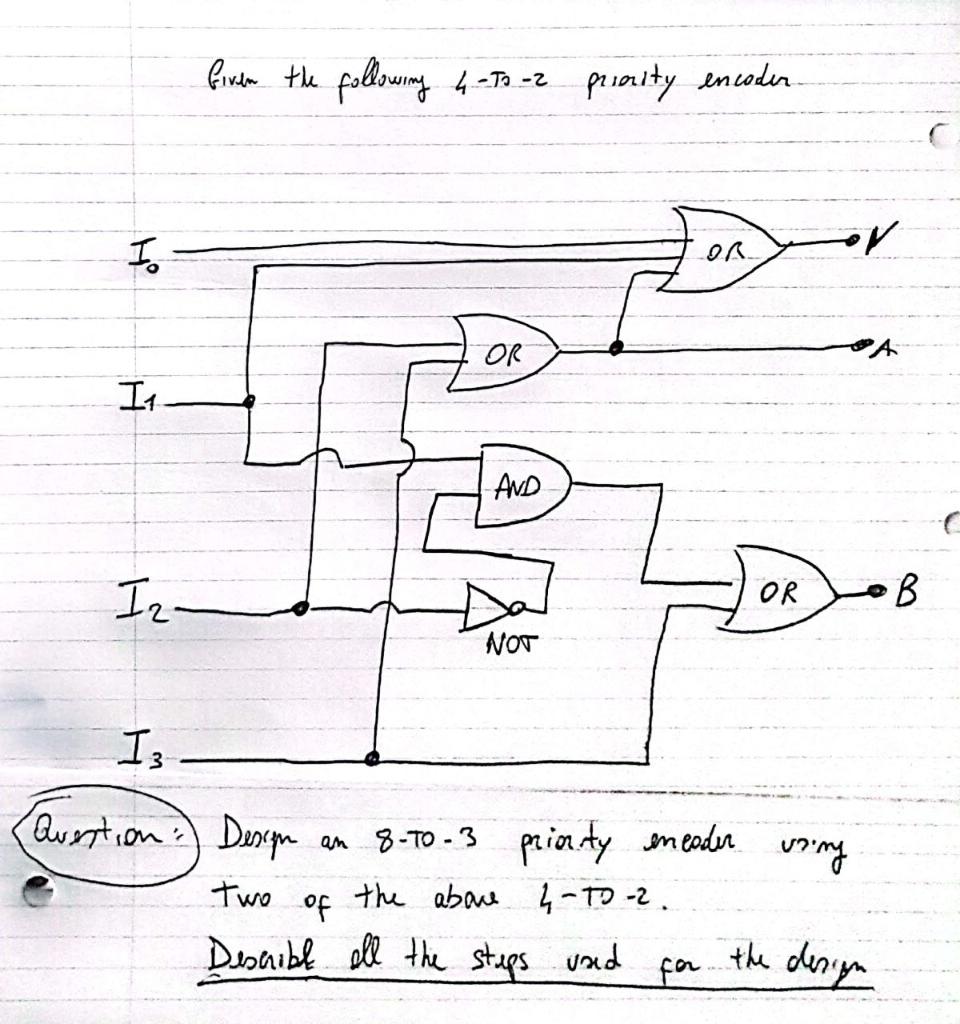 Given the following 4-TO-2 priority encoder
I0
OR
V
OR
A
I1
AND
I2
NOT
OR
B
I3
Question: Design an 8-TO-3 priority encoder using
two of the above 4-TO-2.
Describe all the steps used for the design